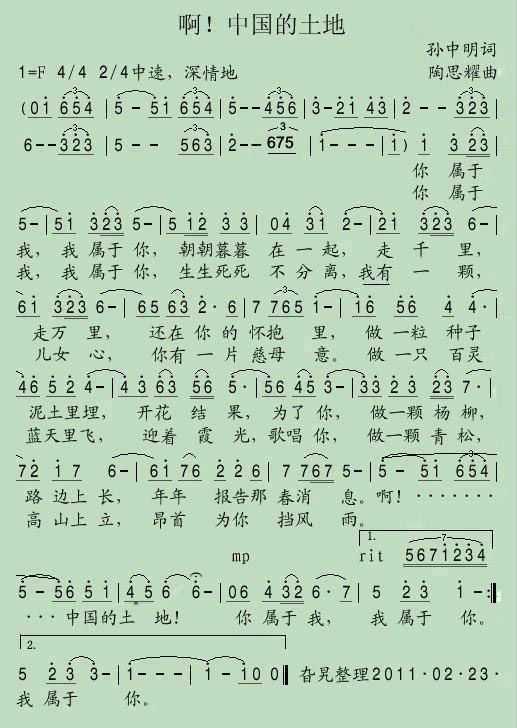 啊！中国的土地
孙中明词
1=F 4/4 2/4中速，深情地 陶思耀曲
(01 654 | 5- 51 654 | 5--456 | 3-21 43 | 2-- 323 |
6--323 | 5-- 563 | 2-- 675 | 1--- | 1) 1 3 23
你 属于
你 属于
5- | 51 323 5- | 5 12 33 | 04 5 3- | 21 323 6- |
我，我 属于 你，朝朝暮暮 在 一 起， 走 千 里，
我，我 属于 你，生生死死 不 分 离，我有 一 颗，
61 323 6- | 65 63 2· 6 | 7 765 1- | 16 56 4 4· |
走万 里， 还在 你 的 怀抱 里， 做 一粒 种子
儿女 心， 你有 一 片 慈母 意。 做 一只 百灵
46 52 4- | 4 3 63 56 | 5· 6 5- | 33 23 23 7· |
泥土里埋， 开花 结 果，为了 你， 做一颗 杨 柳，
蓝天里飞， 迎着 霞 光，歌唱 你， 做一颗 青 松，
72 1 7 6- | 61 76 2 26 | 7 767 5- | 5- 51 654 |
路 边上 长， 年年 报告那 春消 息。啊！·······
高 山上 立， 昂首 为你 挡风 雨。
1.
mp rit 5671234
5- 56 51 | 456 6- | 06 4 32 6·7 | 5 45 1- :||
···中国的土 地！ 你 属于 我， 我 属于 你。
2.
5 23 3- | 1--- | 1-10 0 || 旮旯整理2011·02·23·
我 属于 你。